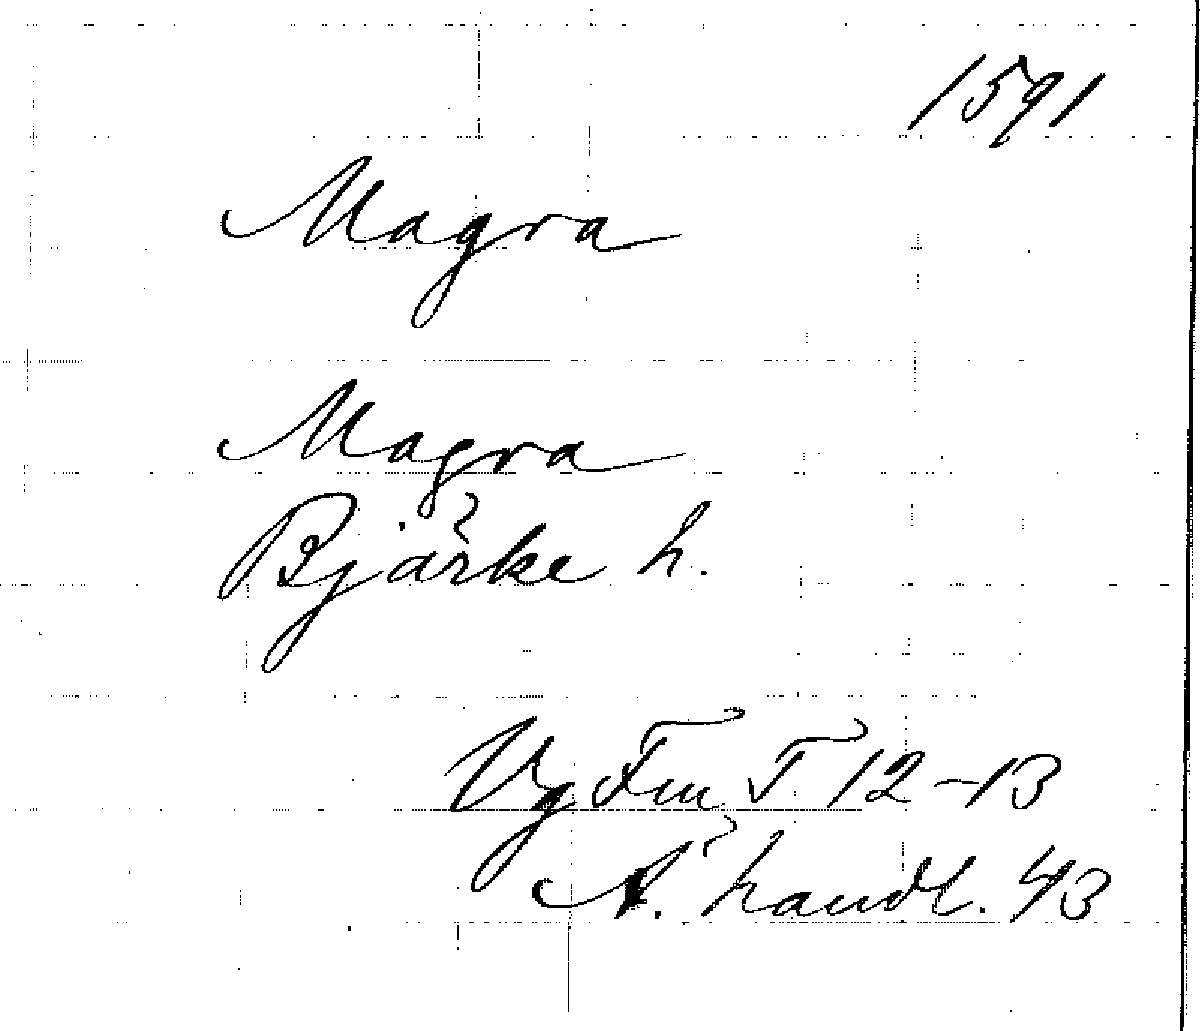 1591
Magra
Magra
Bjärke h.
Vg Fm T 12-13
Ä. handl. 43